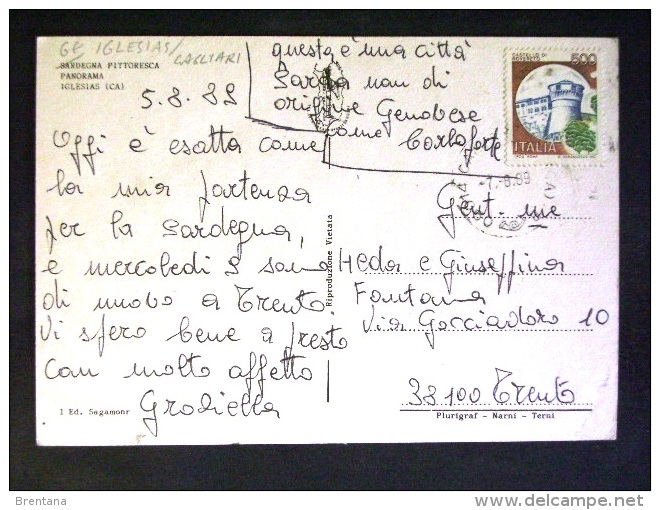 GF IGLESIAS/
CAGLIARI
SARDEGNA PITTORESCA
PANORAMA
IGLESIAS (CA)
5.8.89
questa è una città
Sarda non di
origine Genovese
come Carloforte
Oggi è esatta come
la mia partenza
per la Sardegna,
e mercoledì 9 sono
di nuovo a Trento.
Vi spero bene a presto
con molto affetto
Graziella
CASTELLO DI
ROVERETO
500
ITALIA
7.8.89
(CA)
Gent.me
Heda e Giuseffina
Fontana
Via Gocciadoro 10
38100 Trento
Riproduzione Vietata
I Ed. Sagamonr
Plurigraf - Narni - Terni
Brentana
delcampe.net